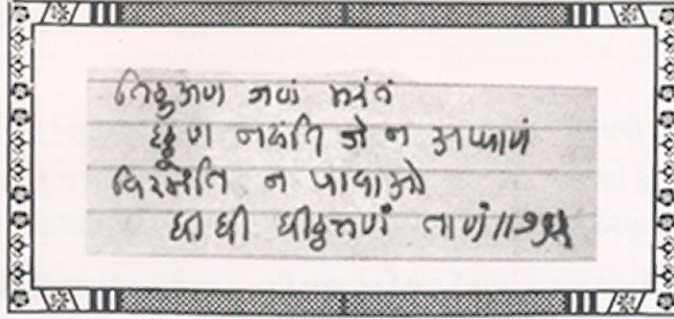 तिहुअण जणं मरंतं
दट्ठूण नयंति जे न अप्पाणं
विरमंति न पावाओ
धी धी धीट्ठत्तणं ताणं॥